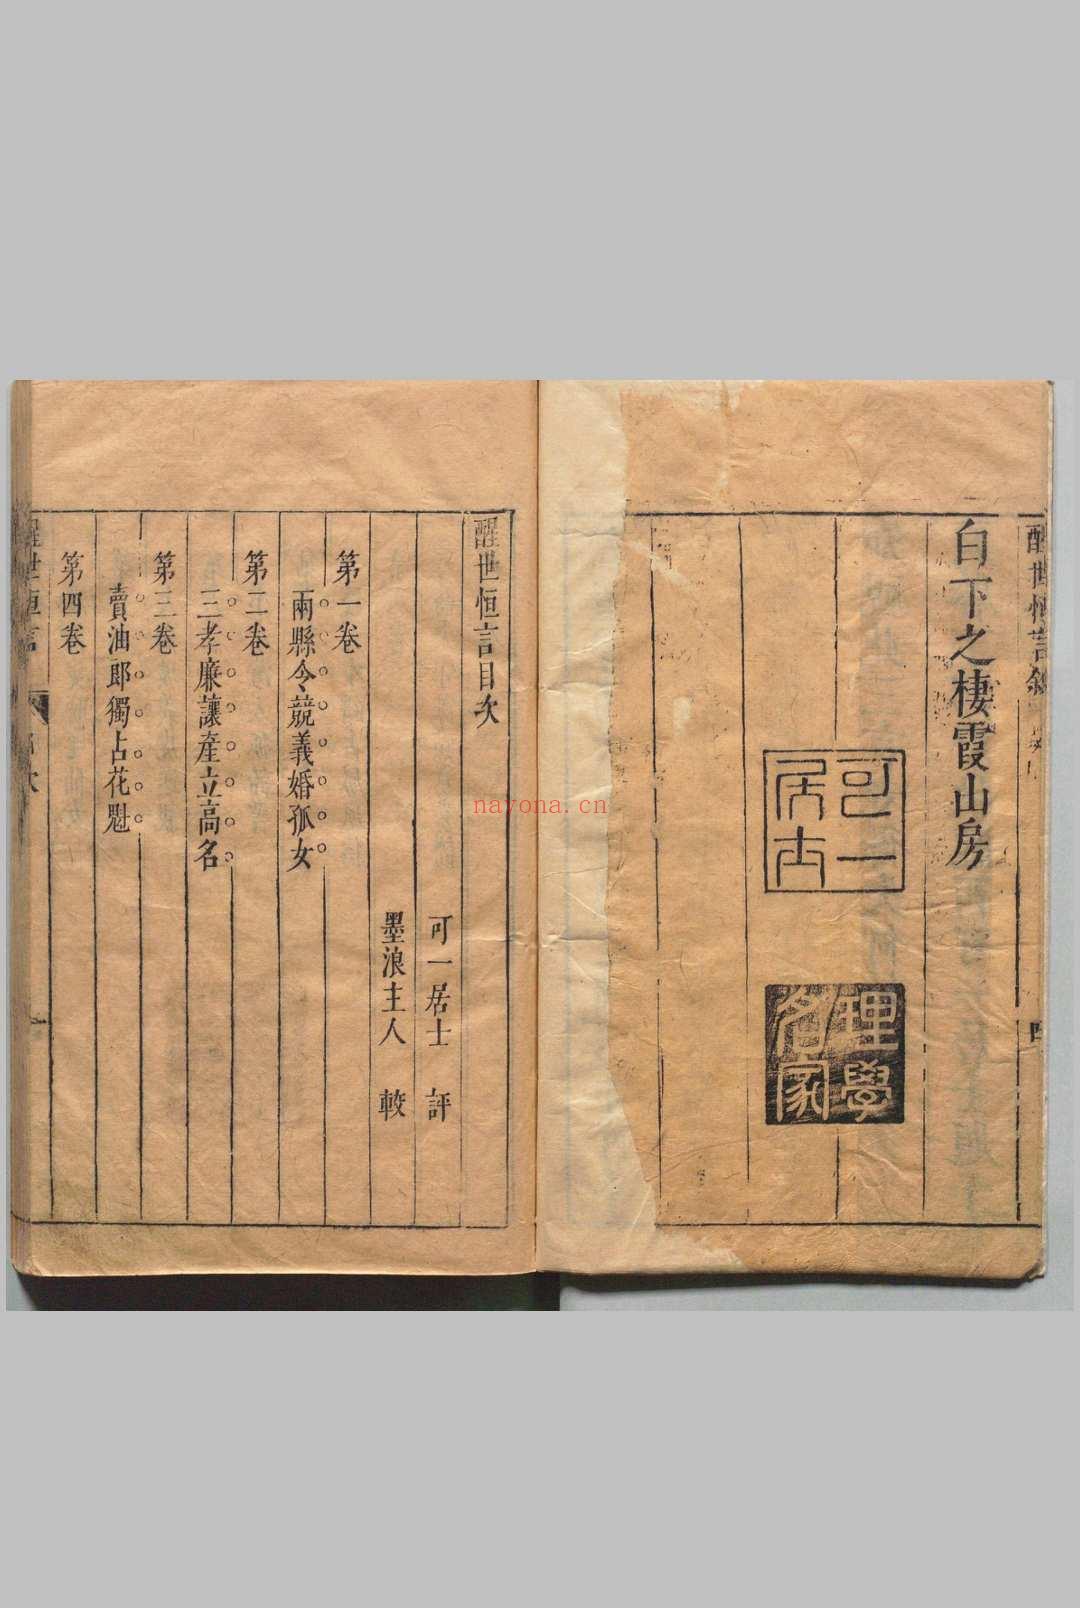 醒世恒言敘
四
白下之棲霞山房
可一居士
理學名家
醒世恒言目次
可一居士 評
墨浪主人 較
第一卷
兩縣令競義婚孤女
第二卷
三孝廉讓產立高名
第三卷
賣油郎獨占花魁
第四卷
醒世恒言
目次
一
nayona.cn